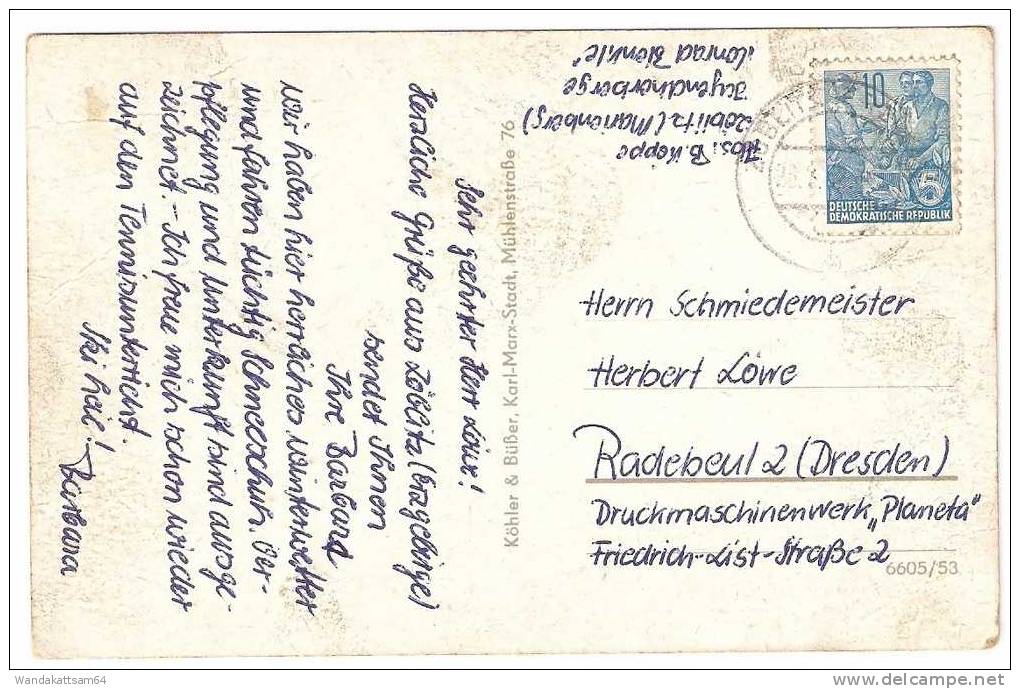 Sehr geehrter Herr Löwe!
Herzliche Grüße aus Zöblitz (Erzgebirge)
sendet Ihnen
Ihre Barbara
Wir haben hier herrliches Winterwetter
und fahren tüchtig Schneeschuh. Ver-
pflegung und Unterkunft sind ausge-
zeichnet. - Ich freue mich schon wieder
auf den Tennisunterricht.
Ski heil! Barbara
Abs.: B. Koppe
Zöblitz (Marienberg)
Jugendherberge
Köhler & Büßer, Karl-Marx-Stadt, Mühlenstraße 76
10
5
DEUTSCHE
DEMOKRATISCHE REPUBLIK
Herrn Schmiedemeister
Herbert Löwe
Radebeul 2 (Dresden)
Druckmaschinenwerk „Planeta"
Friedrich-List-Straße 2
6605/53
Wandakattsam64
www.delcampe.net